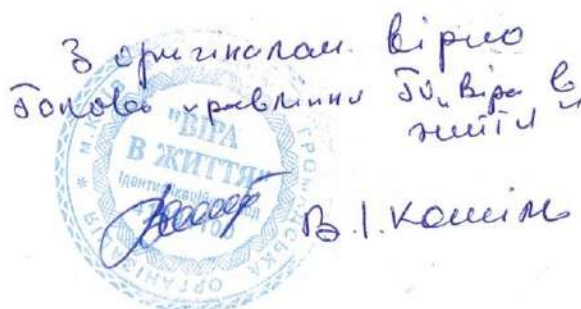 З оригіналом вірно
Голова правління ГО „Віра в
життя"
"ВІРА
В ЖИТТЯ"
Ідентифікаційний код
ГРОМАДСЬКА ОРГАНІЗАЦІЯ
В.І.